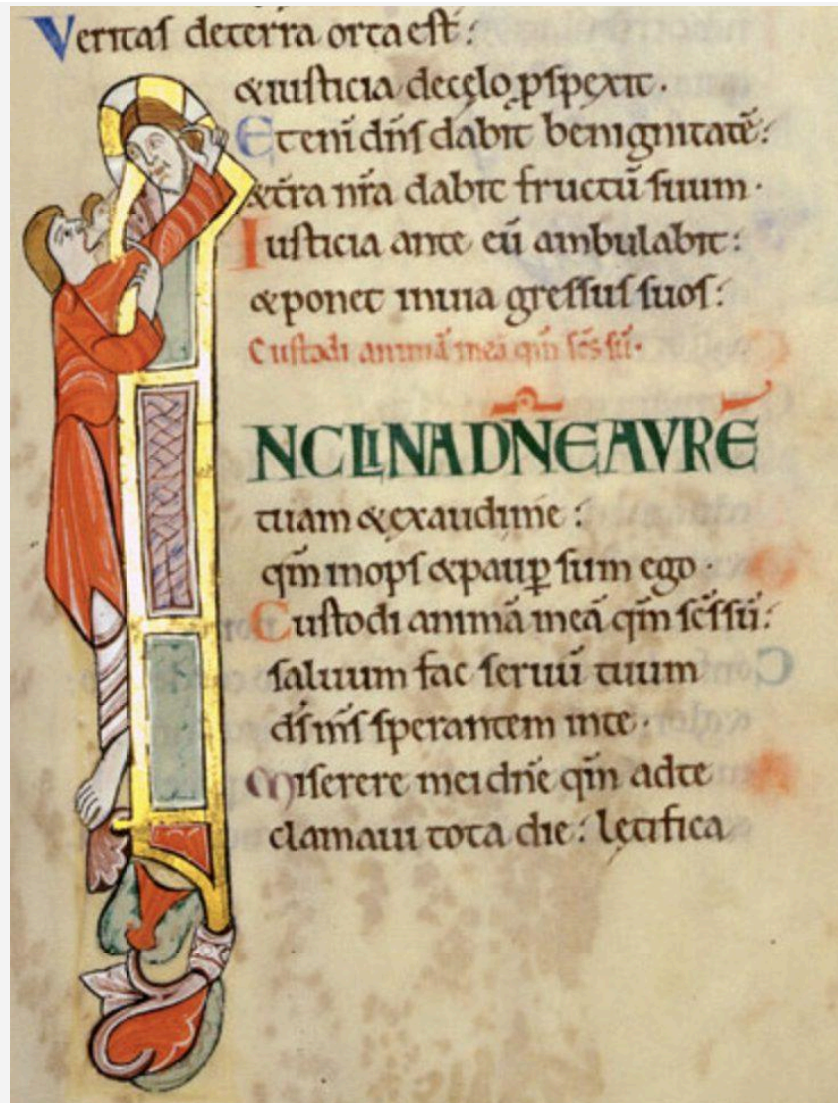 Veritas deterra orta est:
&iusticia decęlo pspexit.
Eteni dn̄s dabit benignitatē:
&tr̄a nr̄a dabit fructū suum.
Iusticia ante eū ambulabit:
&ponet inuia gressus suos:
Custodi animā meā qm̄ sc̄s sū.
INCLINA DN̄E AVRĒ
tuam &exaudime:
qm̄ inops &paup̄ sum ego.
Custodi animā meā qm̄ sc̄s sū:
saluum fac seruū tuum
ds̄ ms̄ sperantem inte.
Miserere mei dn̄e qm̄ adte
clamaui tota die: lętifica